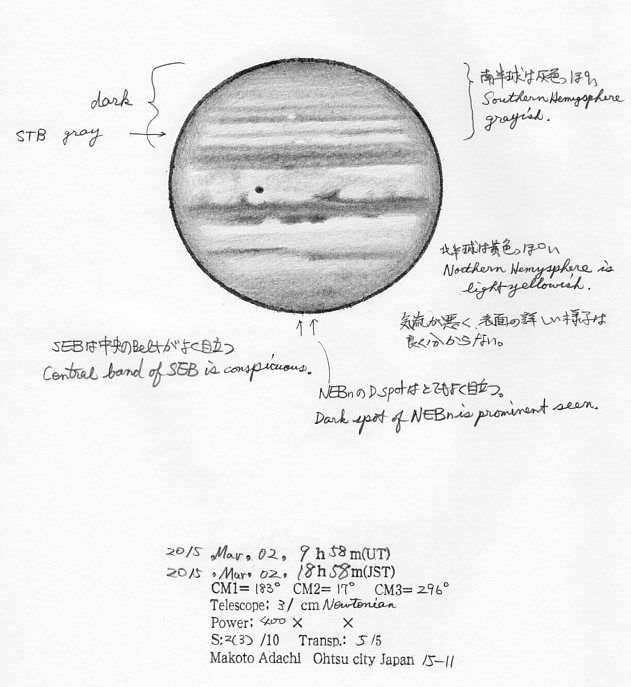 dark
STB gray
南半球は灰色っぽい
Southern Hemysphere
grayish.
北半球は黄色っぽい
Northern Hemysphere is
light yellowish.
気流が悪く 表面の詳しい様子は
良く分からない。
SEBは中央のBeltがよく目立つ
Central band of SEB is conspicuous.
NEBnのD spotはとてもよく目立つ。
Dark spot of NEBn is prominent seen.
2015 .Mar. 02, 9 h 58 m(UT)
2015 .Mar. 02, 18 h 58 m(JST)
CM1= 183° CM2= 17° CM3= 296°
Telescope: 31 cm Newtonian
Power: 400 × ×
S:2(3) /10 Transp.: 5 /5
Makoto Adachi Ohtsu city Japan 15-11